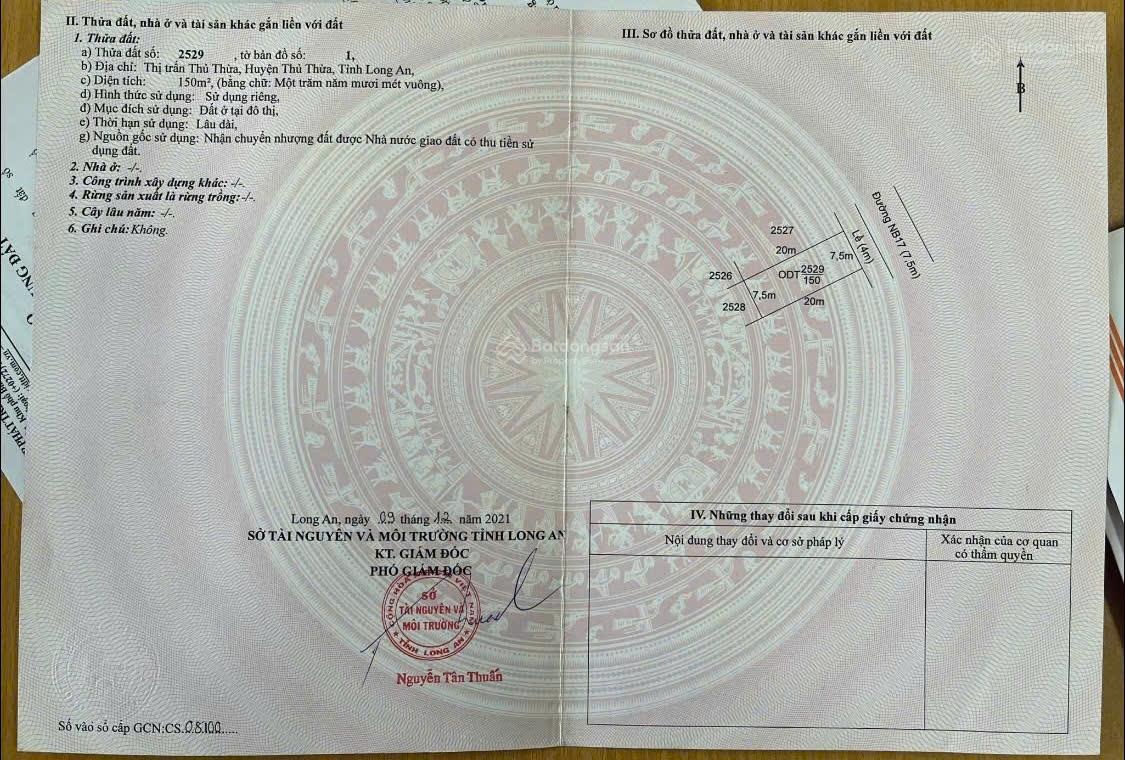 II. Thửa đất, nhà ở và tài sản khác gắn liền với đất
1. Thửa đất:
a) Thửa đất số: 2529 , tờ bản đồ số: 1,
b) Địa chỉ: Thị trấn Thủ Thừa, Huyện Thủ Thừa, Tỉnh Long An,
c) Diện tích: 150m², (bằng chữ: Một trăm năm mươi mét vuông),
d) Hình thức sử dụng: Sử dụng riêng,
đ) Mục đích sử dụng: Đất ở tại đô thị,
e) Thời hạn sử dụng: Lâu dài,
g) Nguồn gốc sử dụng: Nhận chuyển nhượng đất được Nhà nước giao đất có thu tiền sử
dụng đất.
2. Nhà ở: -/-.
3. Công trình xây dựng khác: -/-.
4. Rừng sản xuất là rừng trồng: -/-.
5. Cây lâu năm: -/-.
6. Ghi chú: Không.
Long An, ngày 09 tháng 12 năm 2021
SỞ TÀI NGUYÊN VÀ MÔI TRƯỜNG TỈNH LONG AN
KT. GIÁM ĐỐC
PHÓ GIÁM ĐỐC
CỘNG HÒA VIỆT NAM
SỞ
TÀI NGUYÊN VÀ
MÔI TRƯỜNG
TỈNH LONG AN
Nguyễn Tân Thuấn
Số vào sổ cấp GCN:CS.08100.....
III. Sơ đồ thửa đất, nhà ở và tài sản khác gắn liền với đất
B
2527
20m
7,5m
Lề (4m)
Đường NB17 (7,5m)
2526
ODT 2529
150
7,5m
20m
2528
Batdongsan
by PropertyGuru
Batdongsan
IV. Những thay đổi sau khi cấp giấy chứng nhận
Nội dung thay đổi và cơ sở pháp lý
Xác nhận của cơ quan
có thẩm quyền